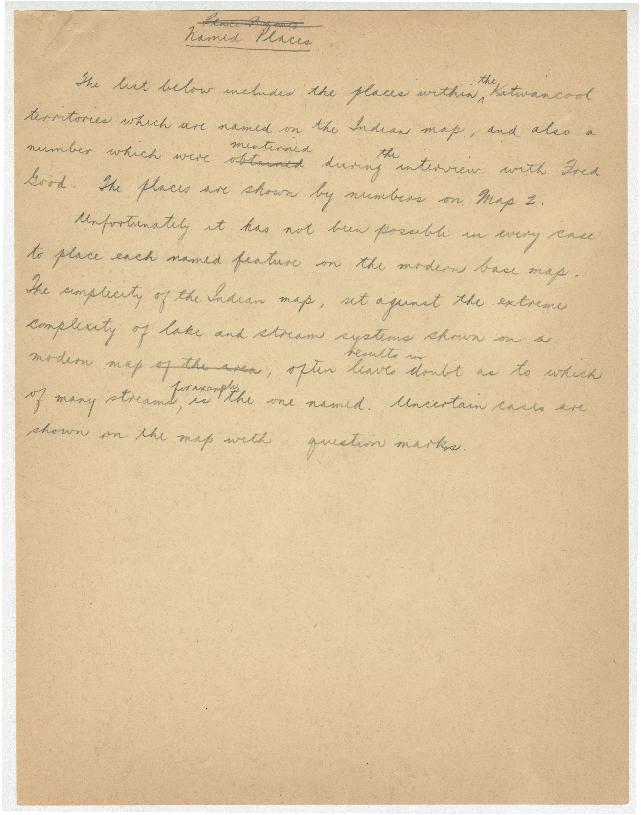 Place Names
Named Places
The list below includes the places within the Kitwancool
territories which are named on the Indian map, and also a
number which were obtained mentioned during the interview with Fred
Good. The places are shown by numbers on Map 2.
Unfortunately it has not been possible in every case
to place each named feature on the modern base map.
The simplicity of the Indian map, set against the extreme
complexity of lake and stream systems shown on a
modern map of the area, often leaves results in doubt as to which
of many streams, for example, is the one named. Uncertain cases are
shown on the map with question marks.